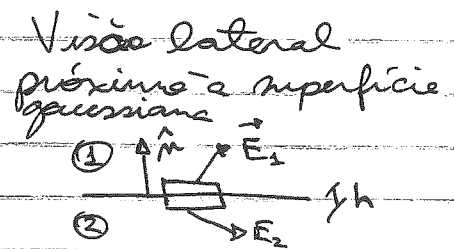 Visão lateral
próximo à superfície
gaussiana
① n̂ E⃗₁
② E₂ h